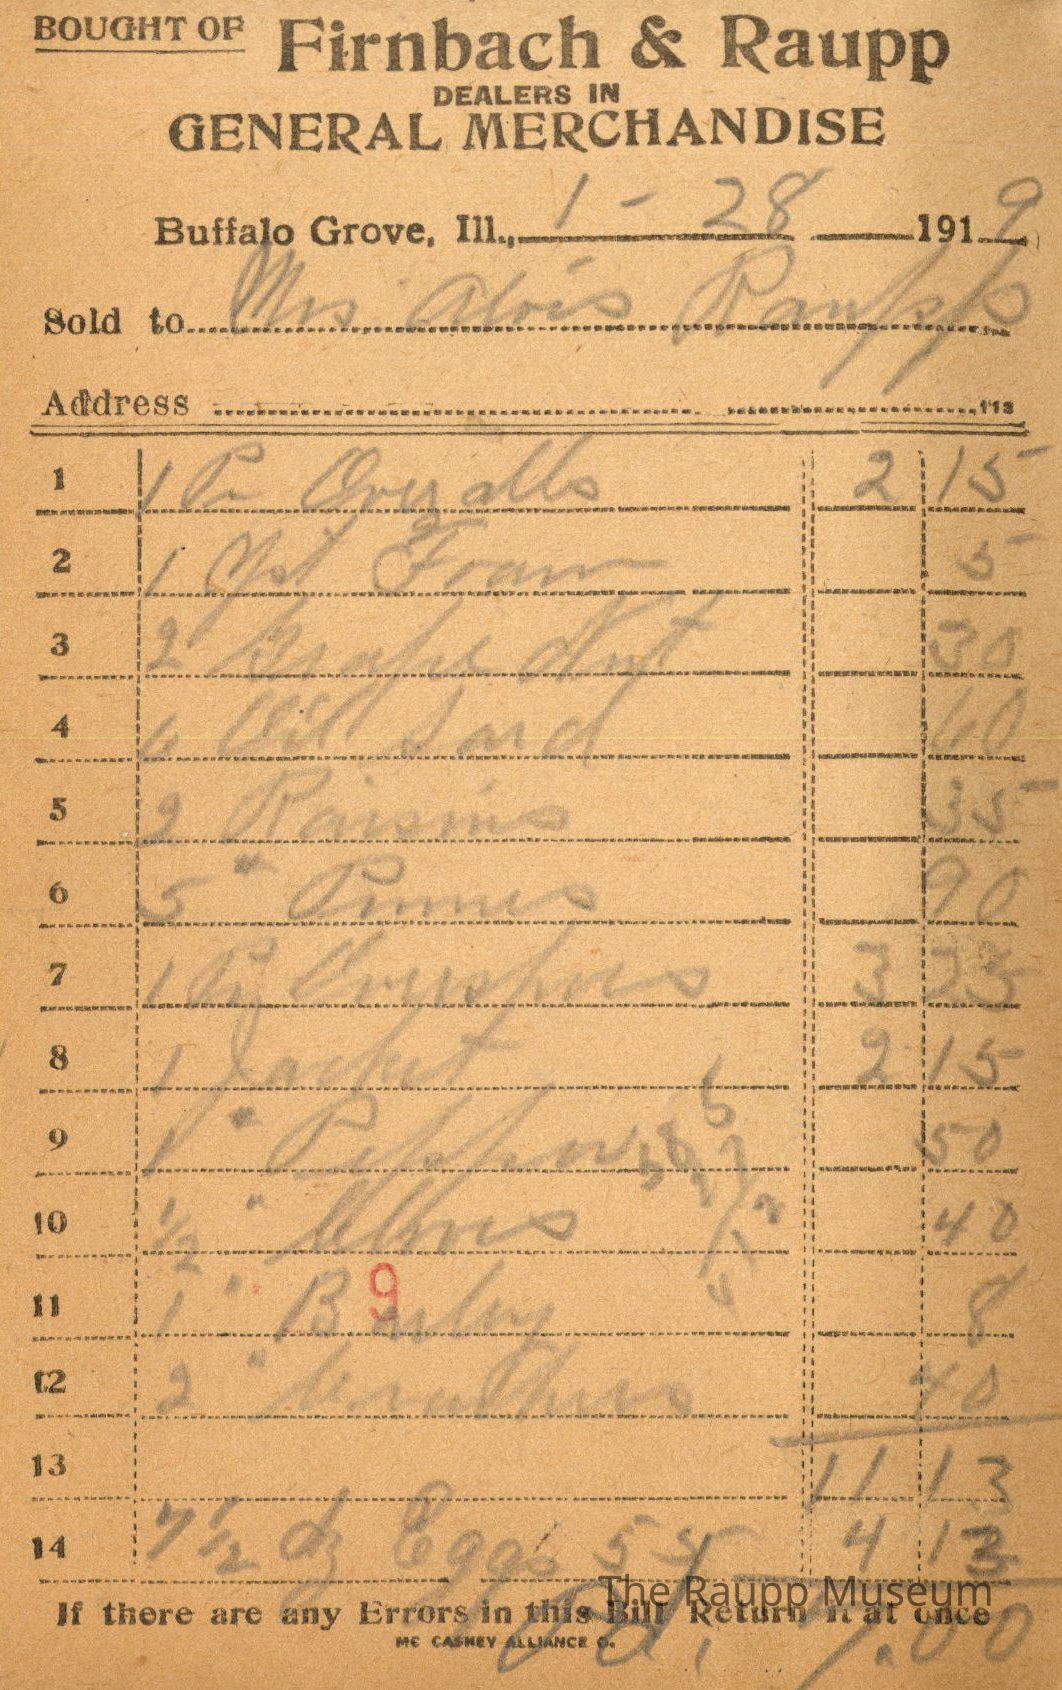 BOUGHT OF Firnbach & Raupp
DEALERS IN
GENERAL MERCHANDISE
Buffalo Grove, Ill., 1 - 28 1919
Sold to Mrs Alois Raupp
Address
1 1 Pr Overalls 2 15
2 1 Yst Foam 5
3 2 Grape Nut 30
4 6 Oil Sard 60
5 2 Raisins 35
6 5 " Prunes 90
7 1 Pr Overshoes 3 25
8 1 Jacket 2 15
9 1 " Pepper 50
10 1/2 " Cloves 40
11 1 " Barley 8
9
12 2 " 40
13 11 13
14 7 1/2 dz Eggs 55 4 13
The Raupp Museum
If there are any Errors in this Bill Return it at once
7.00
MC CASKEY ALLIANCE O.